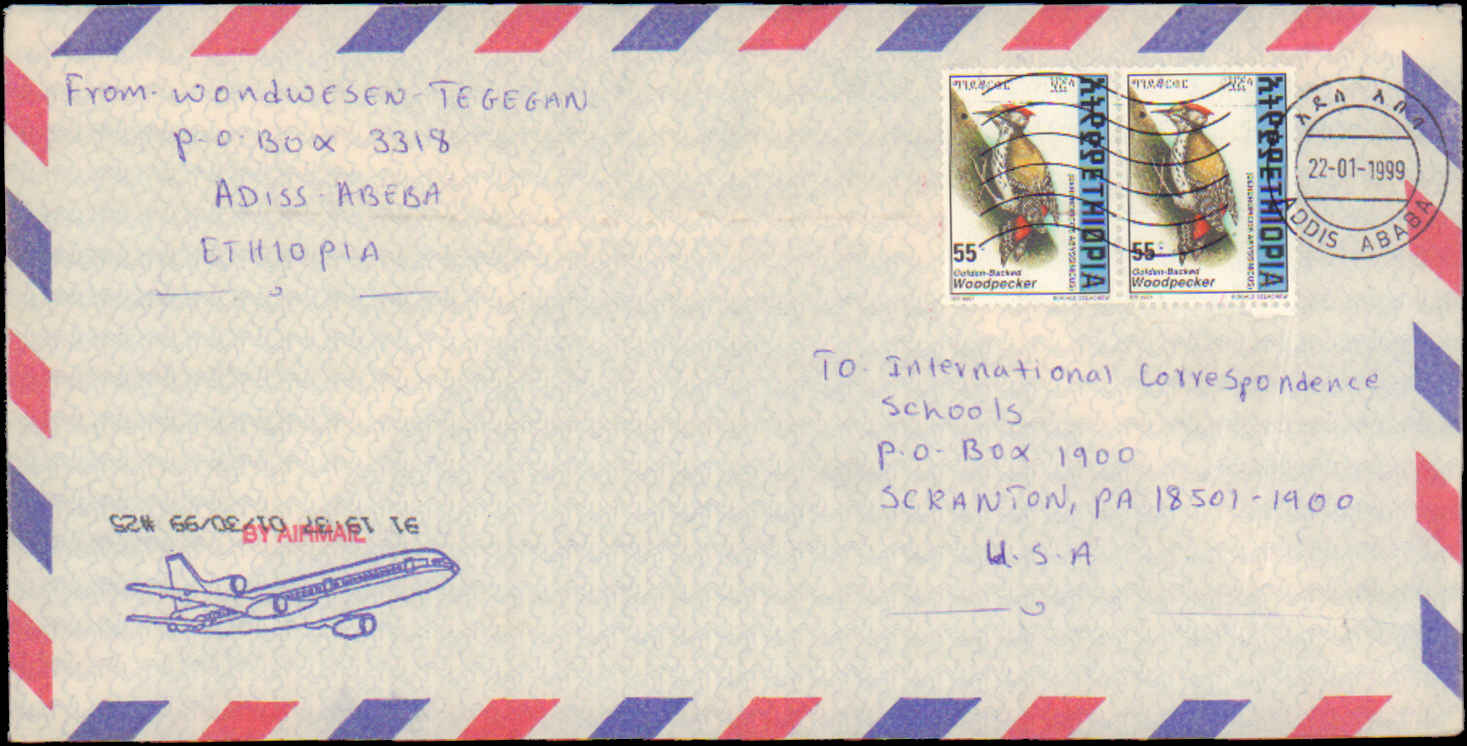 From- WONDWESEN-TEGEGAN
P-O-BOX 3318
ADISS-ABEBA
ETHIOPIA
ኢትዮጵያ ETHIOPIA
55
Golden-Backed
Woodpecker
ኢትዮጵያ ETHIOPIA
55
Golden-Backed
Woodpecker
አዲስ አበባ
22-01-1999
ADDIS ABABA
TO- International Correspondence
Schools
P.O- BOX 1900
SCRANTON, PA 18501-1900
U.S.A
91 19:43P 01/30/99 #25
BY AIRMAIL